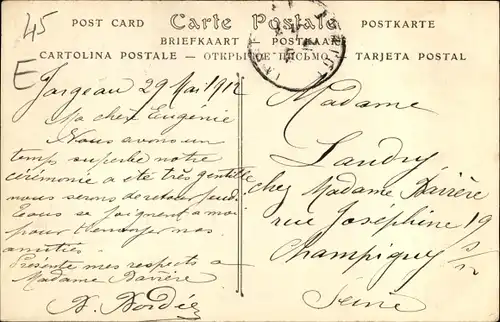 45
E
POST CARD
Carte Postale
POSTKARTE
BRIEFKAART — POSTKAART
CARTOLINA POSTALE — ОТКРЫТОЕ ПИСЬМО — TARJETA POSTAL
Jargeau 29 Mai 1912
Ma chère Eugénie
Nous avons un
temp superbe notre
cérémonie a été très gentille
nous serons de retour
Tous se joignent a moi
pour t'envoyer nos
amitiés
Presente mes respects a
Madame Barrère
Madame
Landry
chez Madame Barrère
rue Joséphine 19
Champigny s/
Seine